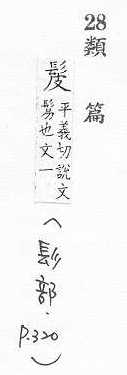 28
類篇
髲
平義切說文
鬄也文一
(髟部．P.320)